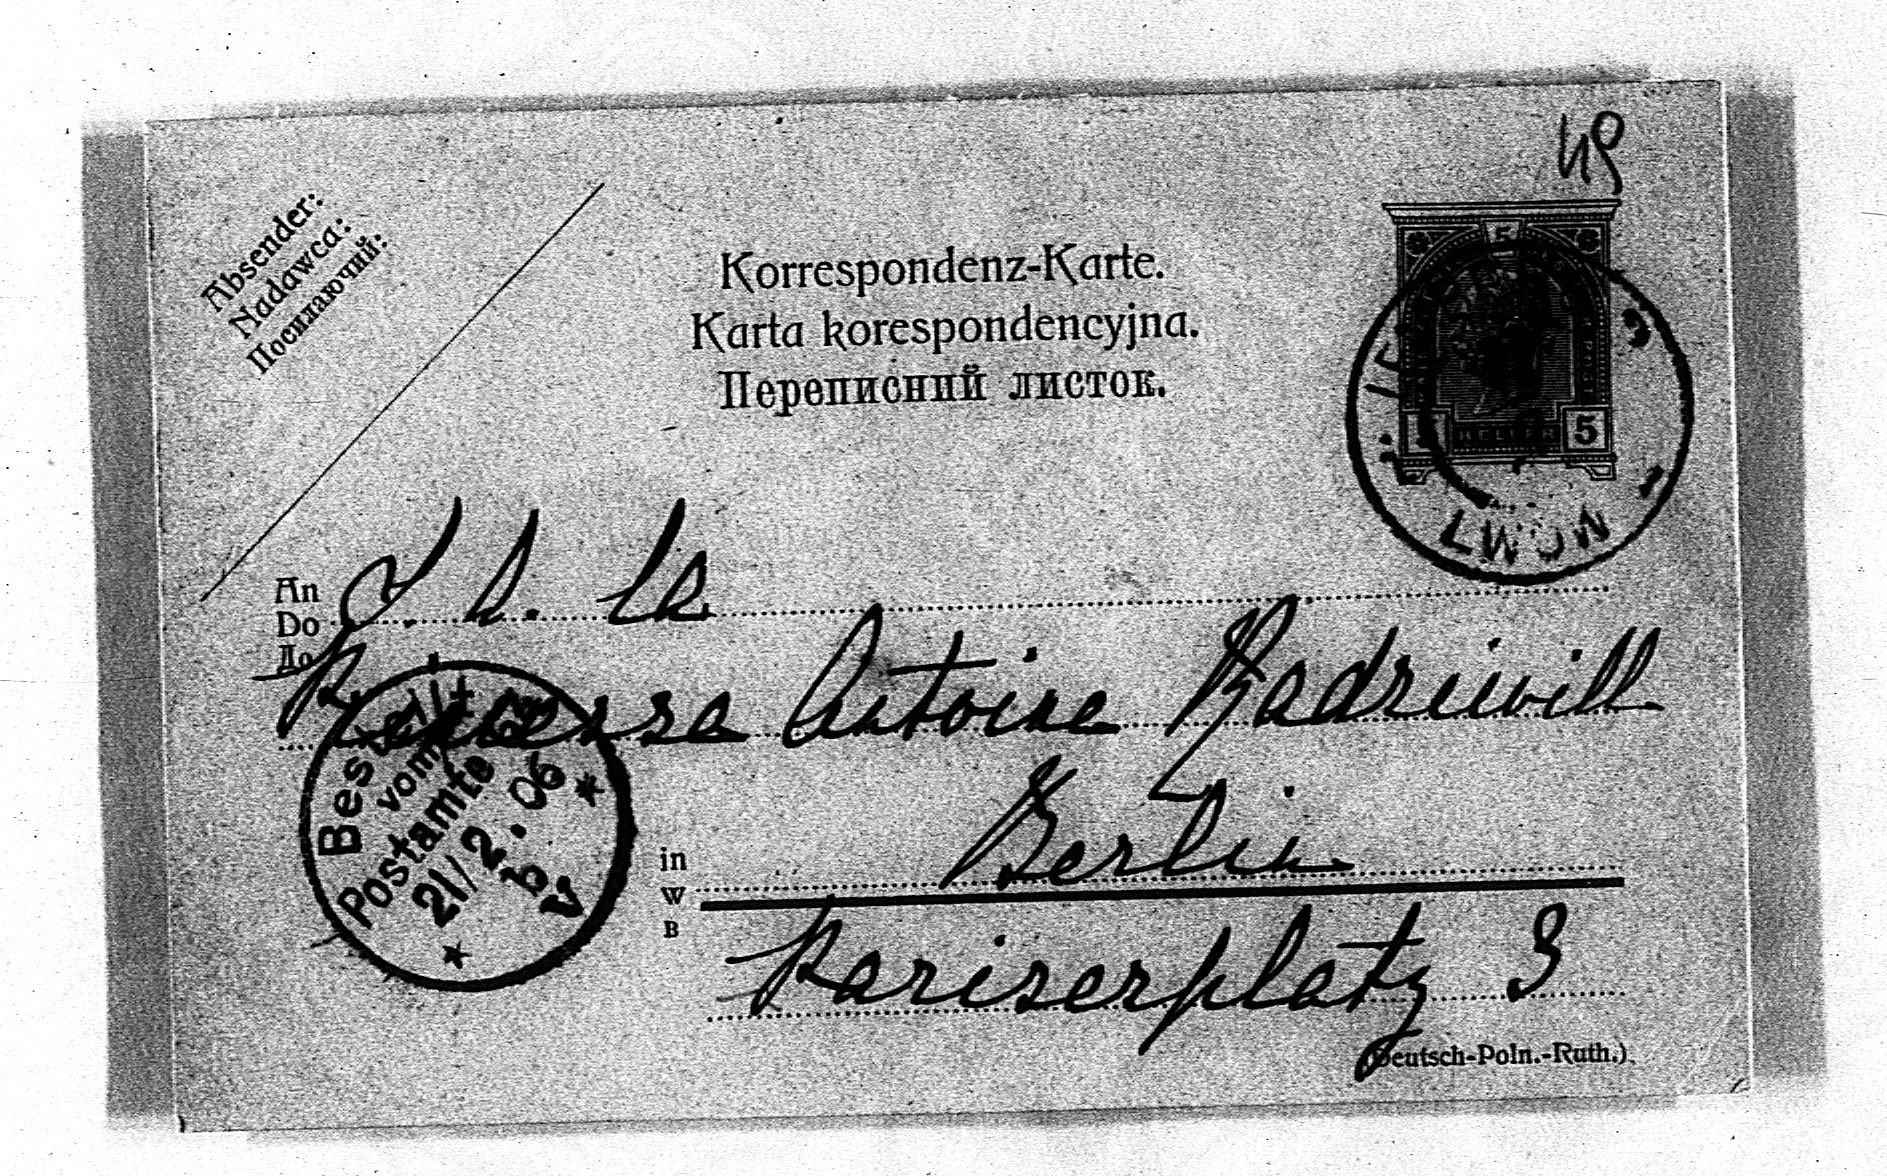 49
Absender:
Nadawca:
Посилаючий:
Korrespondenz-Karte.
Karta korespondencyjna.
Переписний листок.
5
HELLER 5
LWÓW
An
Do
До
S. A. la
Princesse Antoine Radziwill
Bestellt
vom
Postamte
21/2.06
in Berlin
w
в
Pariserplatz 3
(Deutsch-Poln.-Ruth.)